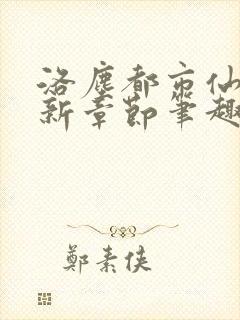 洛塵都市仙
新章節筆趣
鄭素俠